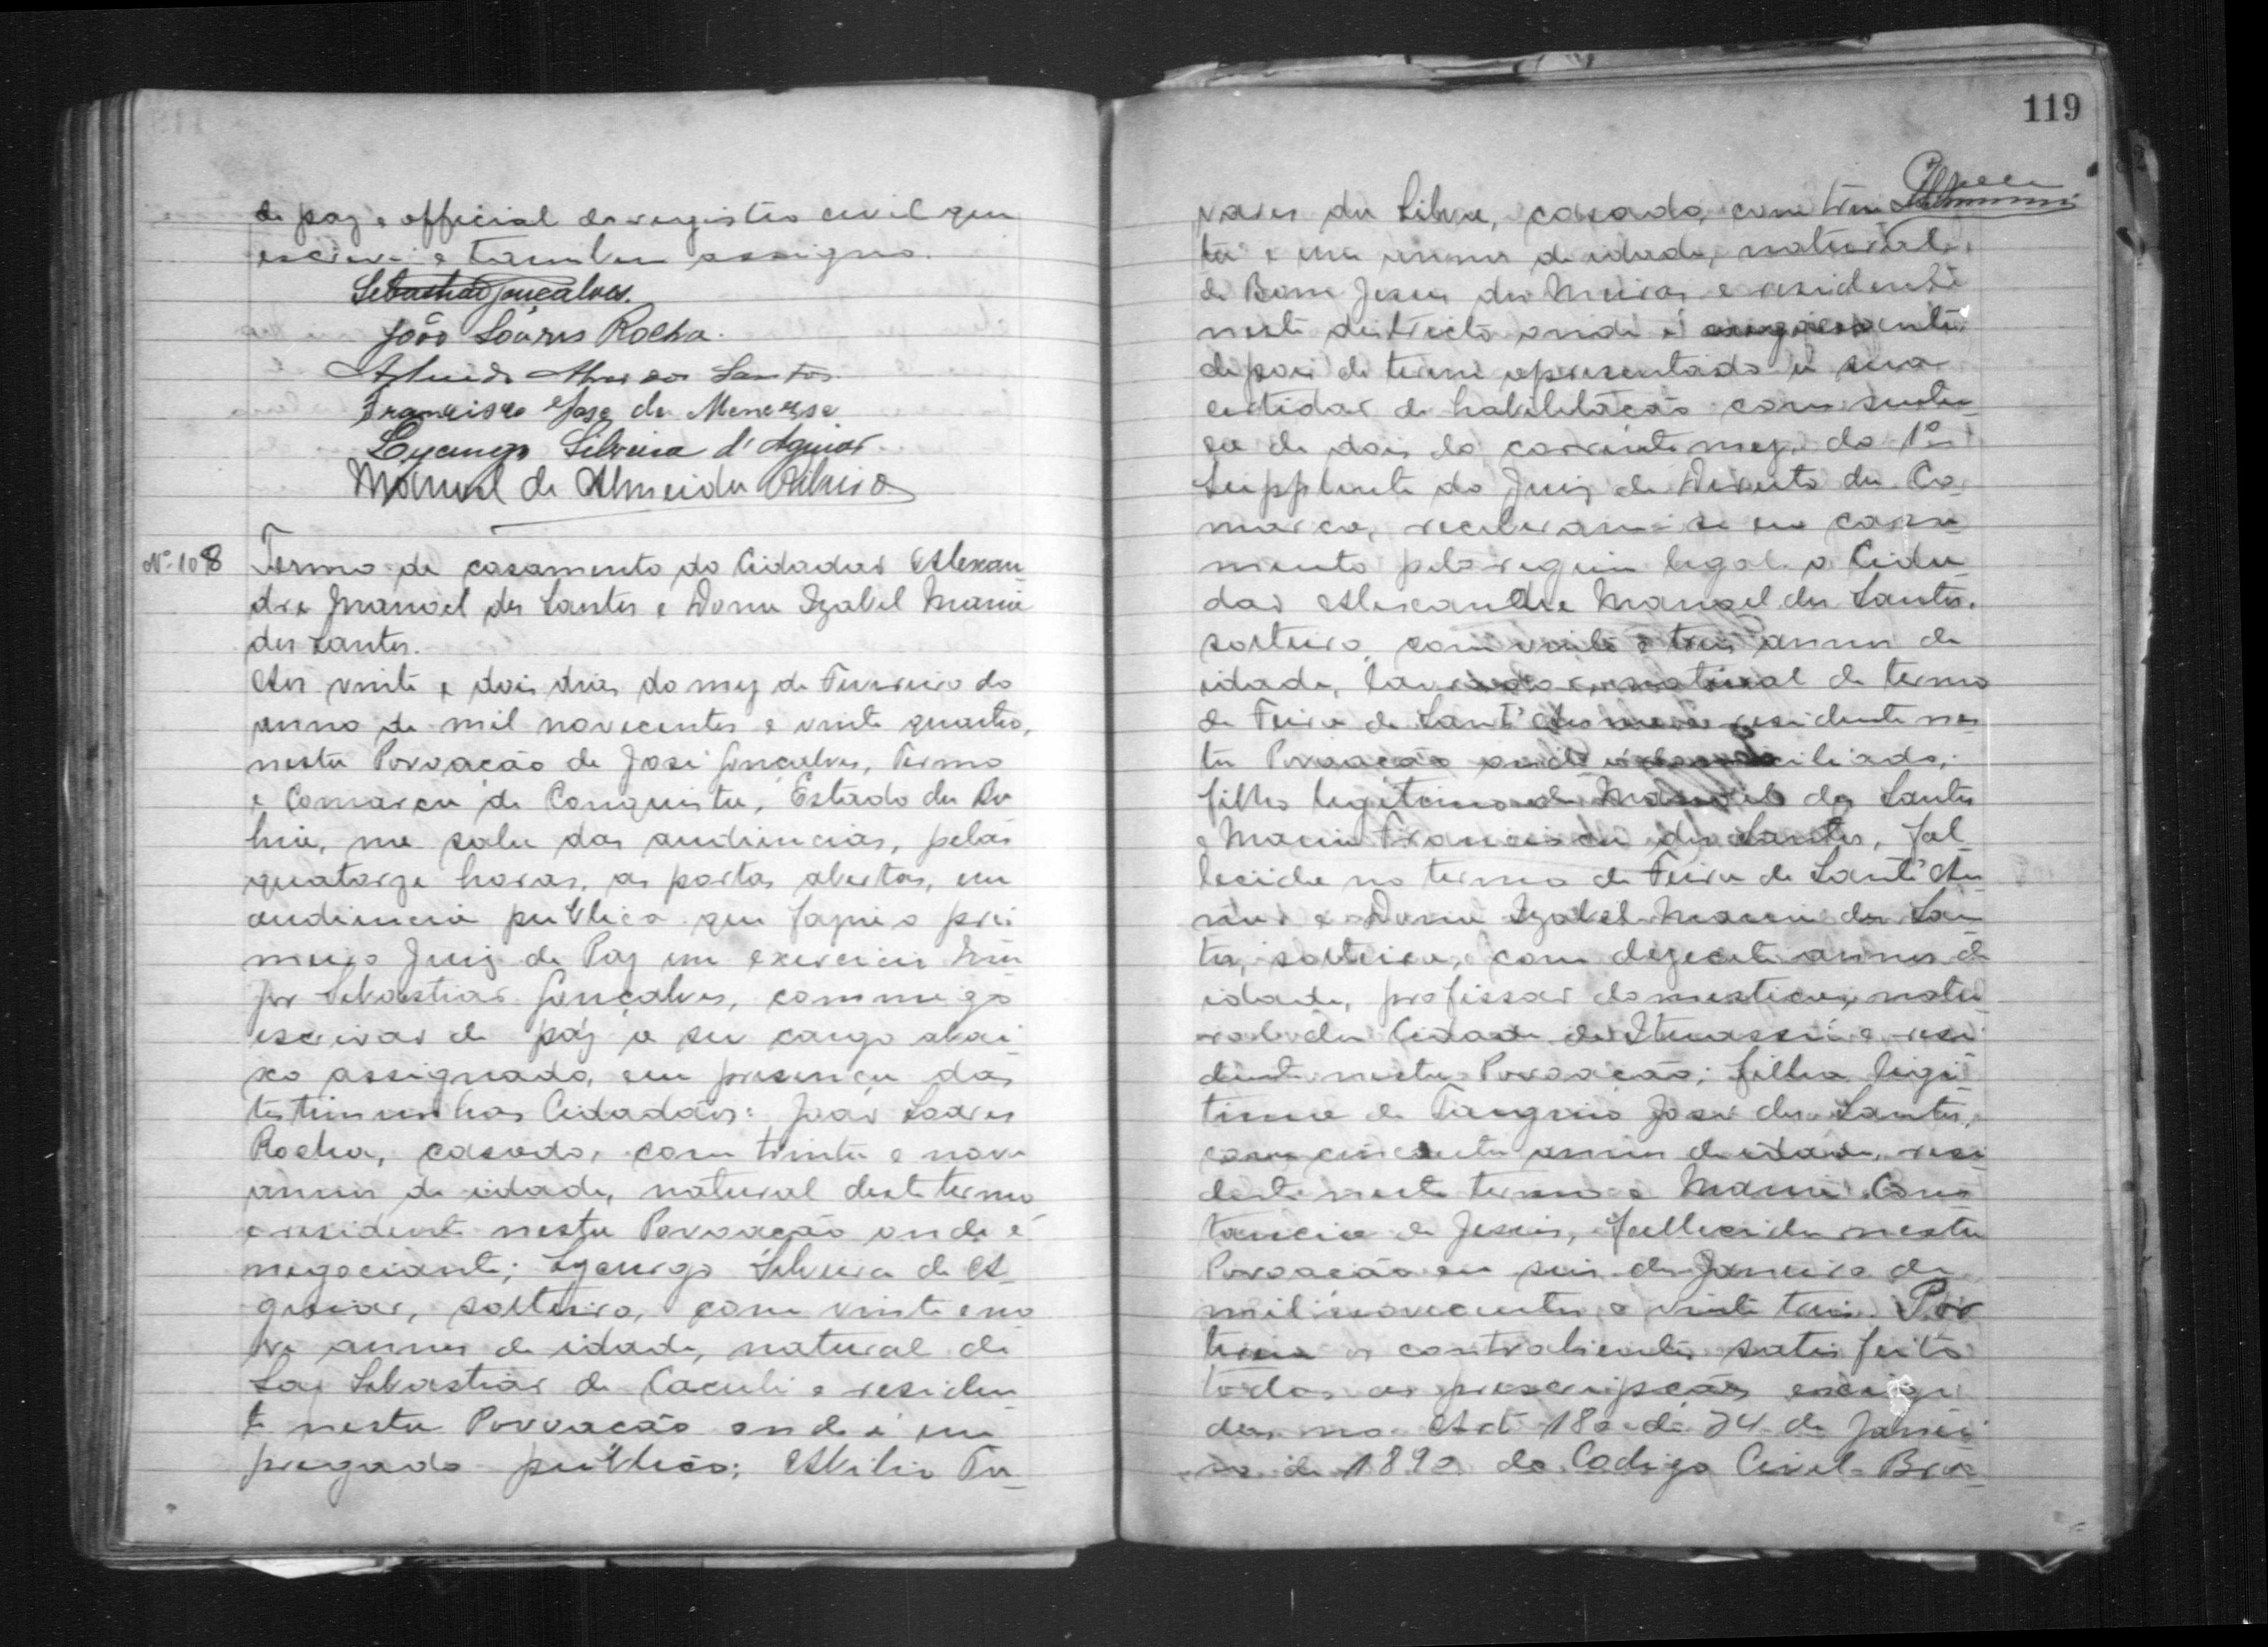 de paz e official do registro civil que
escrevi e tambem assigno.
Sebastião Gonçalves.
João Soares Rocha.
Alves dos Santos
Francisco José de Menezes
Lycurgo Silveira d'Aguiar
Manoel de Almeida Ribeiro
Nº 108 Termo de casamento do Cidadão Alexan-
dre Manoel dos Santos e Dona Izabel Maria
dos Santos.
Aos vinte e dois dias do mez de Fevereiro do
anno de mil novecentos e vinte quatro,
nesta Povoação de José Gonçalves, Termo
e Comarca de Conquista, Estado da Ba
hia, na sala das audiencias, pelas
quatorze horas, as portas abertas, em
audiencia publica que fazia o pri
meiro Juiz de Paz em exercicio
Sebastião Gonçalves, commigo
escrivão de paz a seu cargo abai
xo assignado, em presença das
testimunhas Cidadãos: João Soares
Rocha, casado, com trinta e nove
annos de idade, natural deste termo
e residente nesta Povoação onde é
negociante; Lycurgo Silveira de A-
guiar, solteiro, com vinte e no
ve annos de idade, natural de
São Sebastião de Caculé e residen
te nesta Povoação onde é em
pregado publico; Abilio Ta-
119
vares da Silva, casado, com trin
ta e um annos de idade, natural
de Bom Jesus dos Meiras e residente
neste districto onde é
depois de terem apresentado a sua
certidão de habilitação com senten
ça de dois do corrente mez do 1º
Supplente do Juiz de Direito da Co
marca, receberam-se em casa
mento pelo regimen legal o Cida
dão Alexandre Manoel dos Santos,
solteiro, com vinte e tres annos de
idade, lavrador, natural do termo
de Feira de Sant'Anna e residente nes
ta Povoação onde é domiciliado,
filho legitimo de Manoel dos Santos
e Maria Francisca dos Santos, fal-
lecida no termo de Feira de Sant'An
na e Dona Izabel Maria dos San
tos, solteira, com dezesete annos de
idade, profissão domestica, natu
ral da Cidade de Ituassú e resi
dente nesta Povoação; filha legi
tima de José dos Santos,
com cincoenta annos de idade, resi
dente neste termo e Maria Cons
tancia de Jesus, fallecida nesta
Povoação em seis de Janeiro de
mil novecentos e vinte tres. Por
terem os contrahentes satisfeito
todas as prescripções exigi
das no Art 180 de 24 de Janei
ro de 1890 do Codigo Civil Bra-